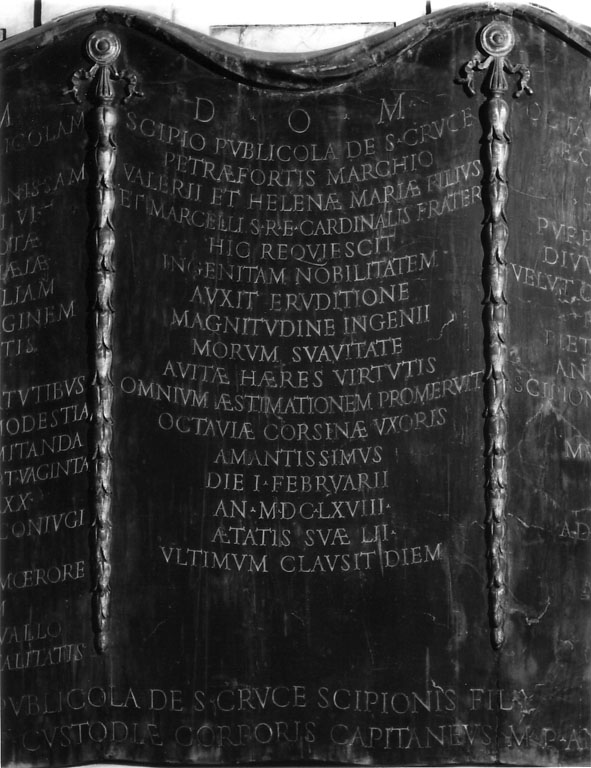 D O M
SCIPIO PVBLICOLA DE S·CRVCE
PETRÆFORTIS MARCHIO
VALERII ET HELENÆ MARIÆ FILIVS
ET MARCELLI S·R·E·CARDINALIS FRATER
HIC REQVIESCIT
INGENITAM NOBILITATEM
AVXIT ERVDITIONE
MAGNITVDINE INGENII
MORVM SVAVITATE
AVITÆ HÆRES VIRTVTIS
OMNIVM ÆSTIMATIONEM PROMERVIT
OCTAVIÆ CORSINÆ VXORIS
AMANTISSIMVS
DIE I·FEBRVARII
AN·M·DC·LXVIII·
ÆTATIS SVÆ LII·
VLTIMVM CLAVSIT DIEM
M
ICOLAM
VI·
LIAM
GINEM
TIS
TVTIBVS
MODESTIA
MITANDA
TVAGINTA
XX·
CONIVGI
MŒRORE
VALLO
ALITATIS
PVRP
DIVV
VELVT
PIET
AN
SCIPION
M
A·D
PVBLICOLA DE S·CRVCE SCIPIONIS FIL
CVSTODIÆ CORPORIS CAPITANEVS M·P·AN